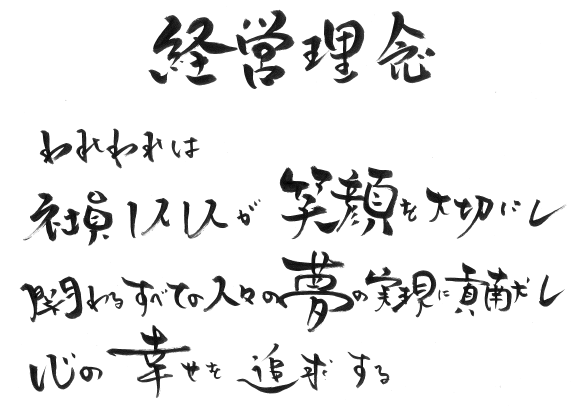 経営理念
われわれは
社員一人一人が笑顔を大切にし
関わるすべての人々の夢の実現に貢献し
心の幸せを追求する